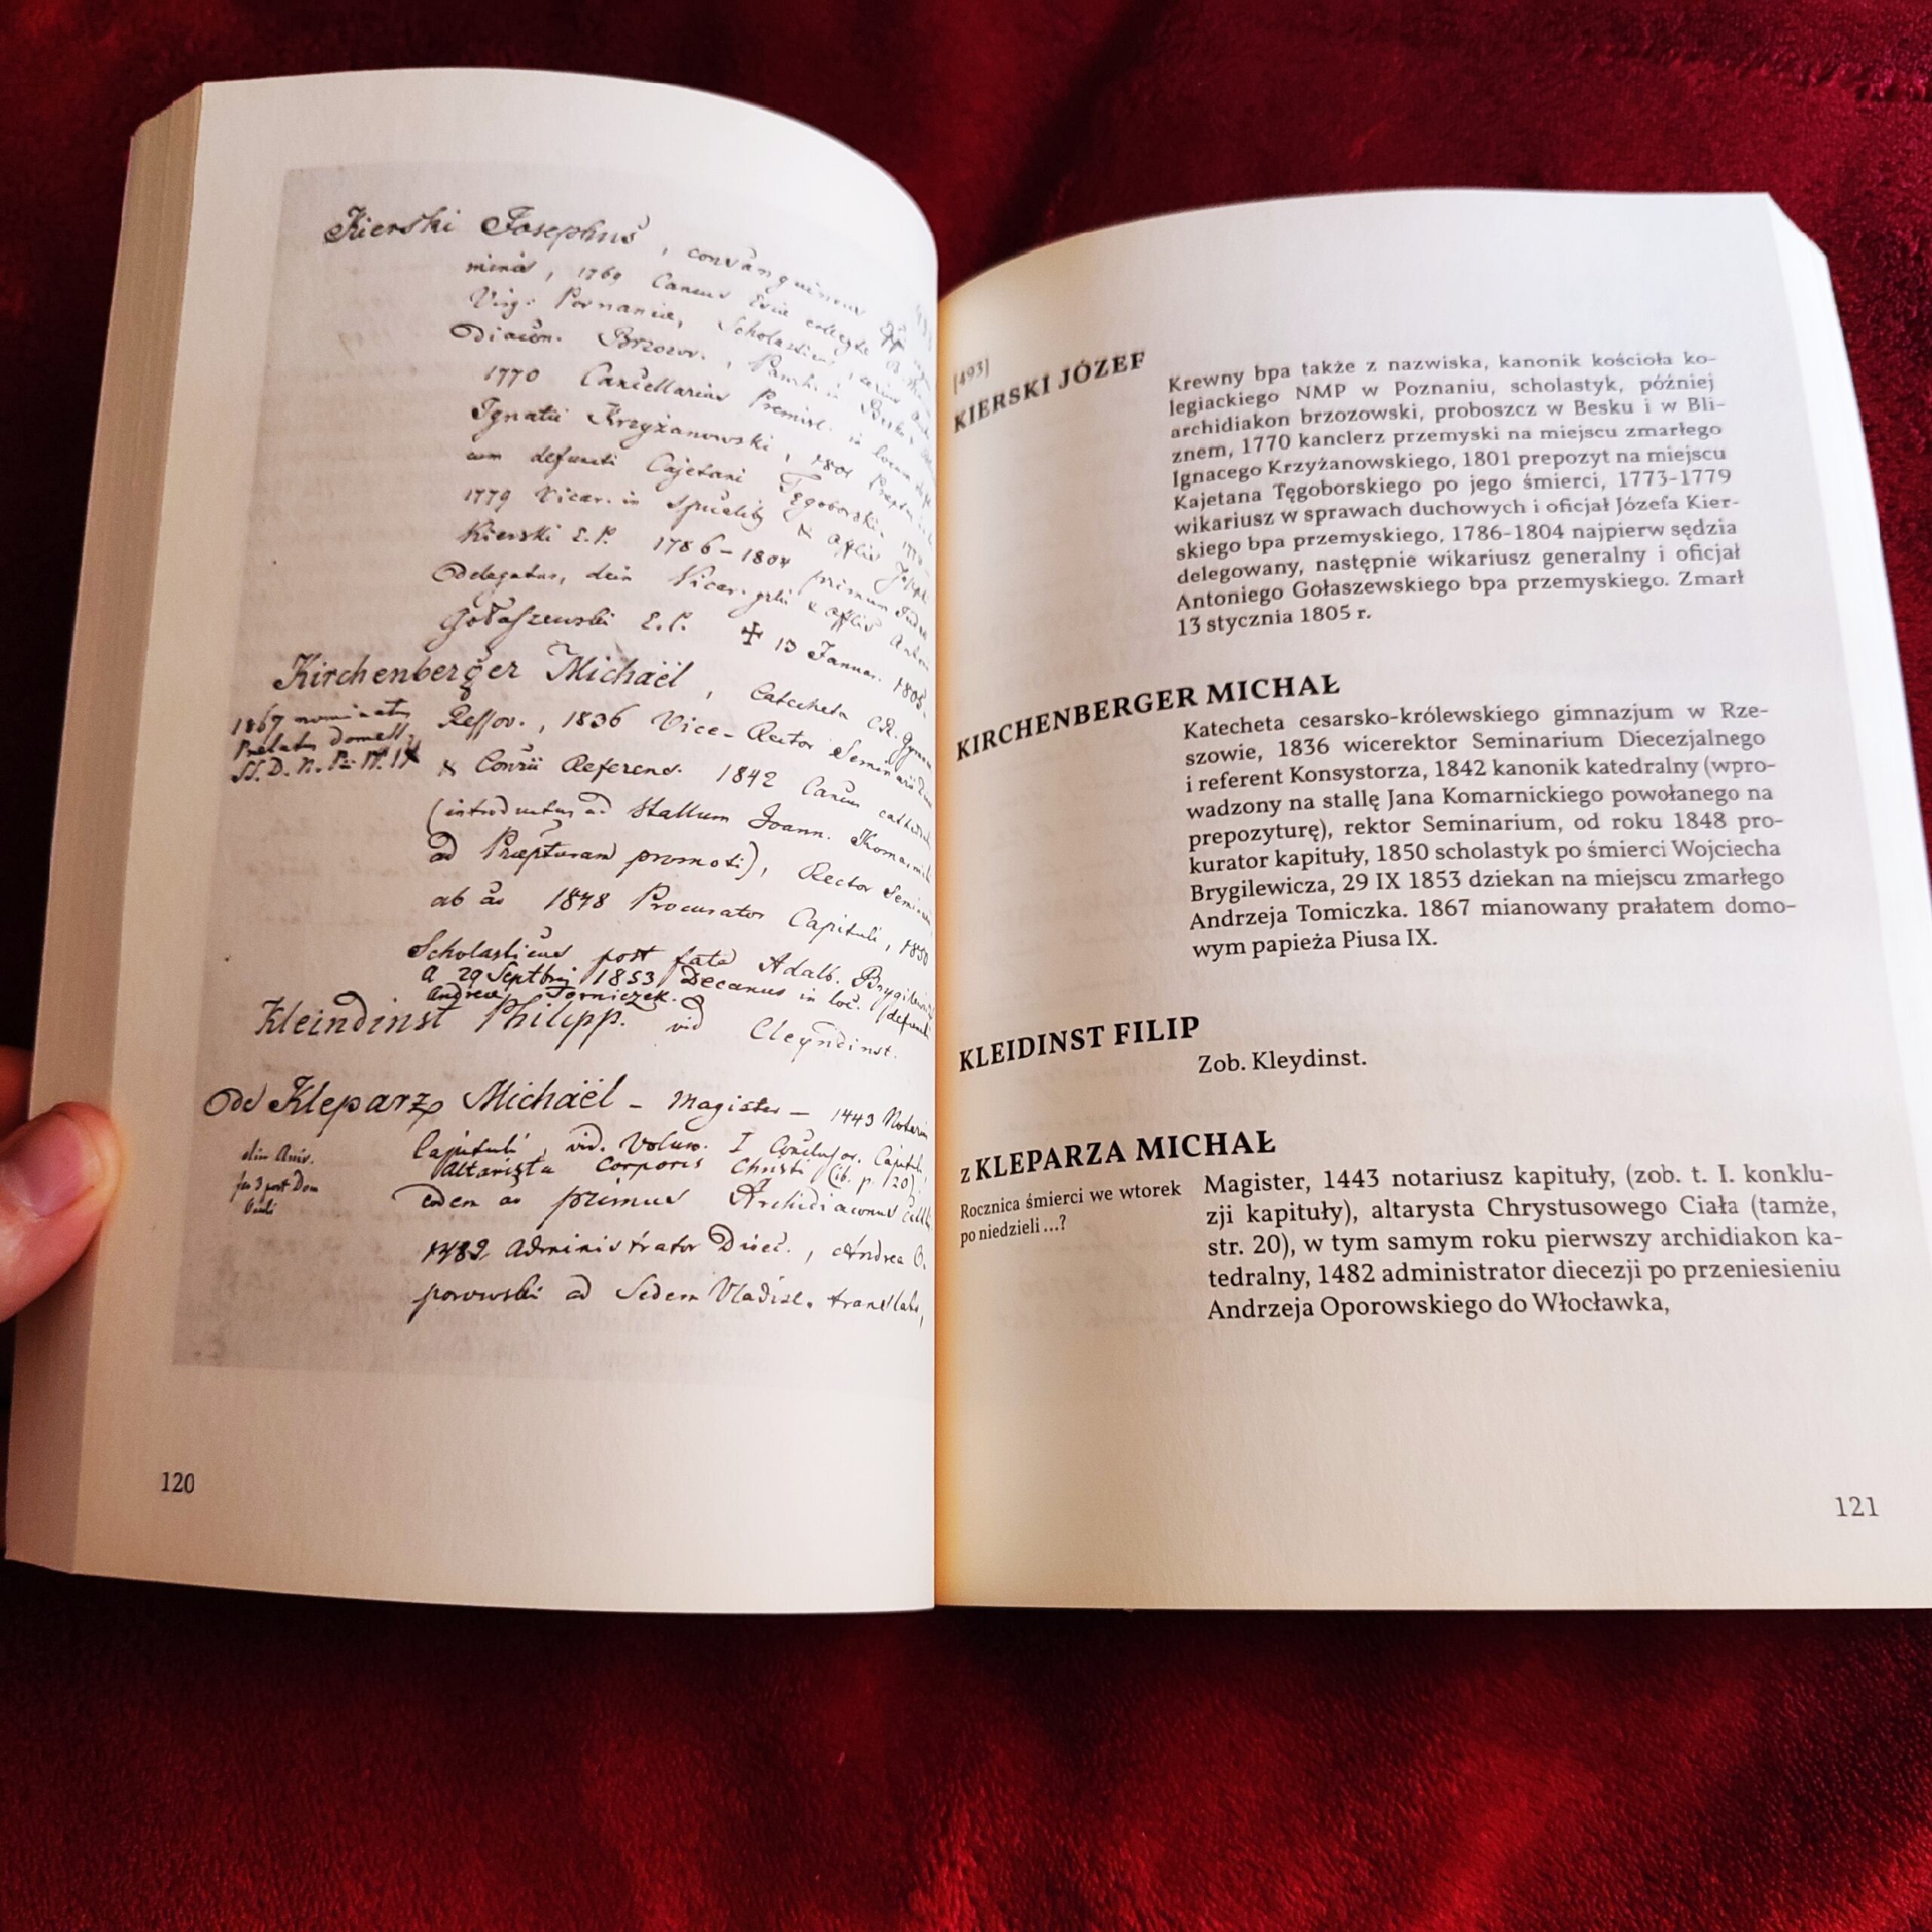 Kierski Josephus, consanguineus
minis, 1769 Cancus Eccae collegte B.
Virg. Posnaniae, Scholasticus,
Diacon. Brzozov., Paroch. in Besko,
1770 Cancellarius Premisl. in locum
Ignatii Krzyżanowski, 1801
um defuncti Cajetani Tęgoborski
1779 Vicar. in Spirualibg & Offlis Joseph
Kierski E.P. 1786-1804 primum Judex
Delegatus, dein Vicar. grlis & Offlis Anton
Gołaszewski E.P. ✠ 13 Januar. 1805.
Kirchenberger Michaël, Catecheta C.R. Gymn
1867 nominatus
Prelatus domest.
SS. D. N. P. IX
Ressov., 1836 Vice-Rector Seminarii
& Consii Referens. 1842 Cancus cathedr
(introductus ad Stallum Joann. Komarnicki
ad Praepturam promoti), Rector Semin
ab ao 1848 Procurator Capituli, 1850
Scholasticus post fata Adalb. Brygilewicz
A 29 Septbris 1853 Decanus in loc. defuncti
Andreae Tomiczek.
Kleindinst Philipp. vid Cleyndinst.
De Kleparz Michaël - Magister - 1443 Notarius
Capituli, vid. Volum. I Capituli
Altarista Corporis Christi (ib. p. 20)
eodem ao primus Archidiaconus
1482 Administrator Dioec., Andrea O-
porowski ad Sedem Vladisl. translato,
120
[493]
KIERSKI JÓZEF
Krewny bpa także z nazwiska, kanonik kościoła ko-
legiackiego NMP w Poznaniu, scholastyk, później
archidiakon brzozowski, proboszcz w Besku i w Bli-
znem, 1770 kanclerz przemyski na miejscu zmarłego
Ignacego Krzyżanowskiego, 1801 prepozyt na miejscu
Kajetana Tęgoborskiego po jego śmierci, 1773-1779
wikariusz w sprawach duchowych i oficjał Józefa Kier-
skiego bpa przemyskiego, 1786-1804 najpierw sędzia
delegowany, następnie wikariusz generalny i oficjał
Antoniego Gołaszewskiego bpa przemyskiego. Zmarł
13 stycznia 1805 r.
KIRCHENBERGER MICHAŁ
Katecheta cesarsko-królewskiego gimnazjum w Rze-
szowie, 1836 wicerektor Seminarium Diecezjalnego
i referent Konsystorza, 1842 kanonik katedralny (wpro-
wadzony na stallę Jana Komarnickiego powołanego na
prepozyturę), rektor Seminarium, od roku 1848 pro-
kurator kapituły, 1850 scholastyk po śmierci Wojciecha
Brygilewicza, 29 IX 1853 dziekan na miejscu zmarłego
Andrzeja Tomiczka. 1867 mianowany prałatem domo-
wym papieża Piusa IX.
KLEIDINST FILIP
Zob. Kleydinst.
z KLEPARZA MICHAŁ
Rocznica śmierci we wtorek
po niedzieli ...?
Magister, 1443 notariusz kapituły, (zob. t. I. konklu-
zji kapituły), altarysta Chrystusowego Ciała (tamże,
str. 20), w tym samym roku pierwszy archidiakon ka-
tedralny, 1482 administrator diecezji po przeniesieniu
Andrzeja Oporowskiego do Włocławka,
121